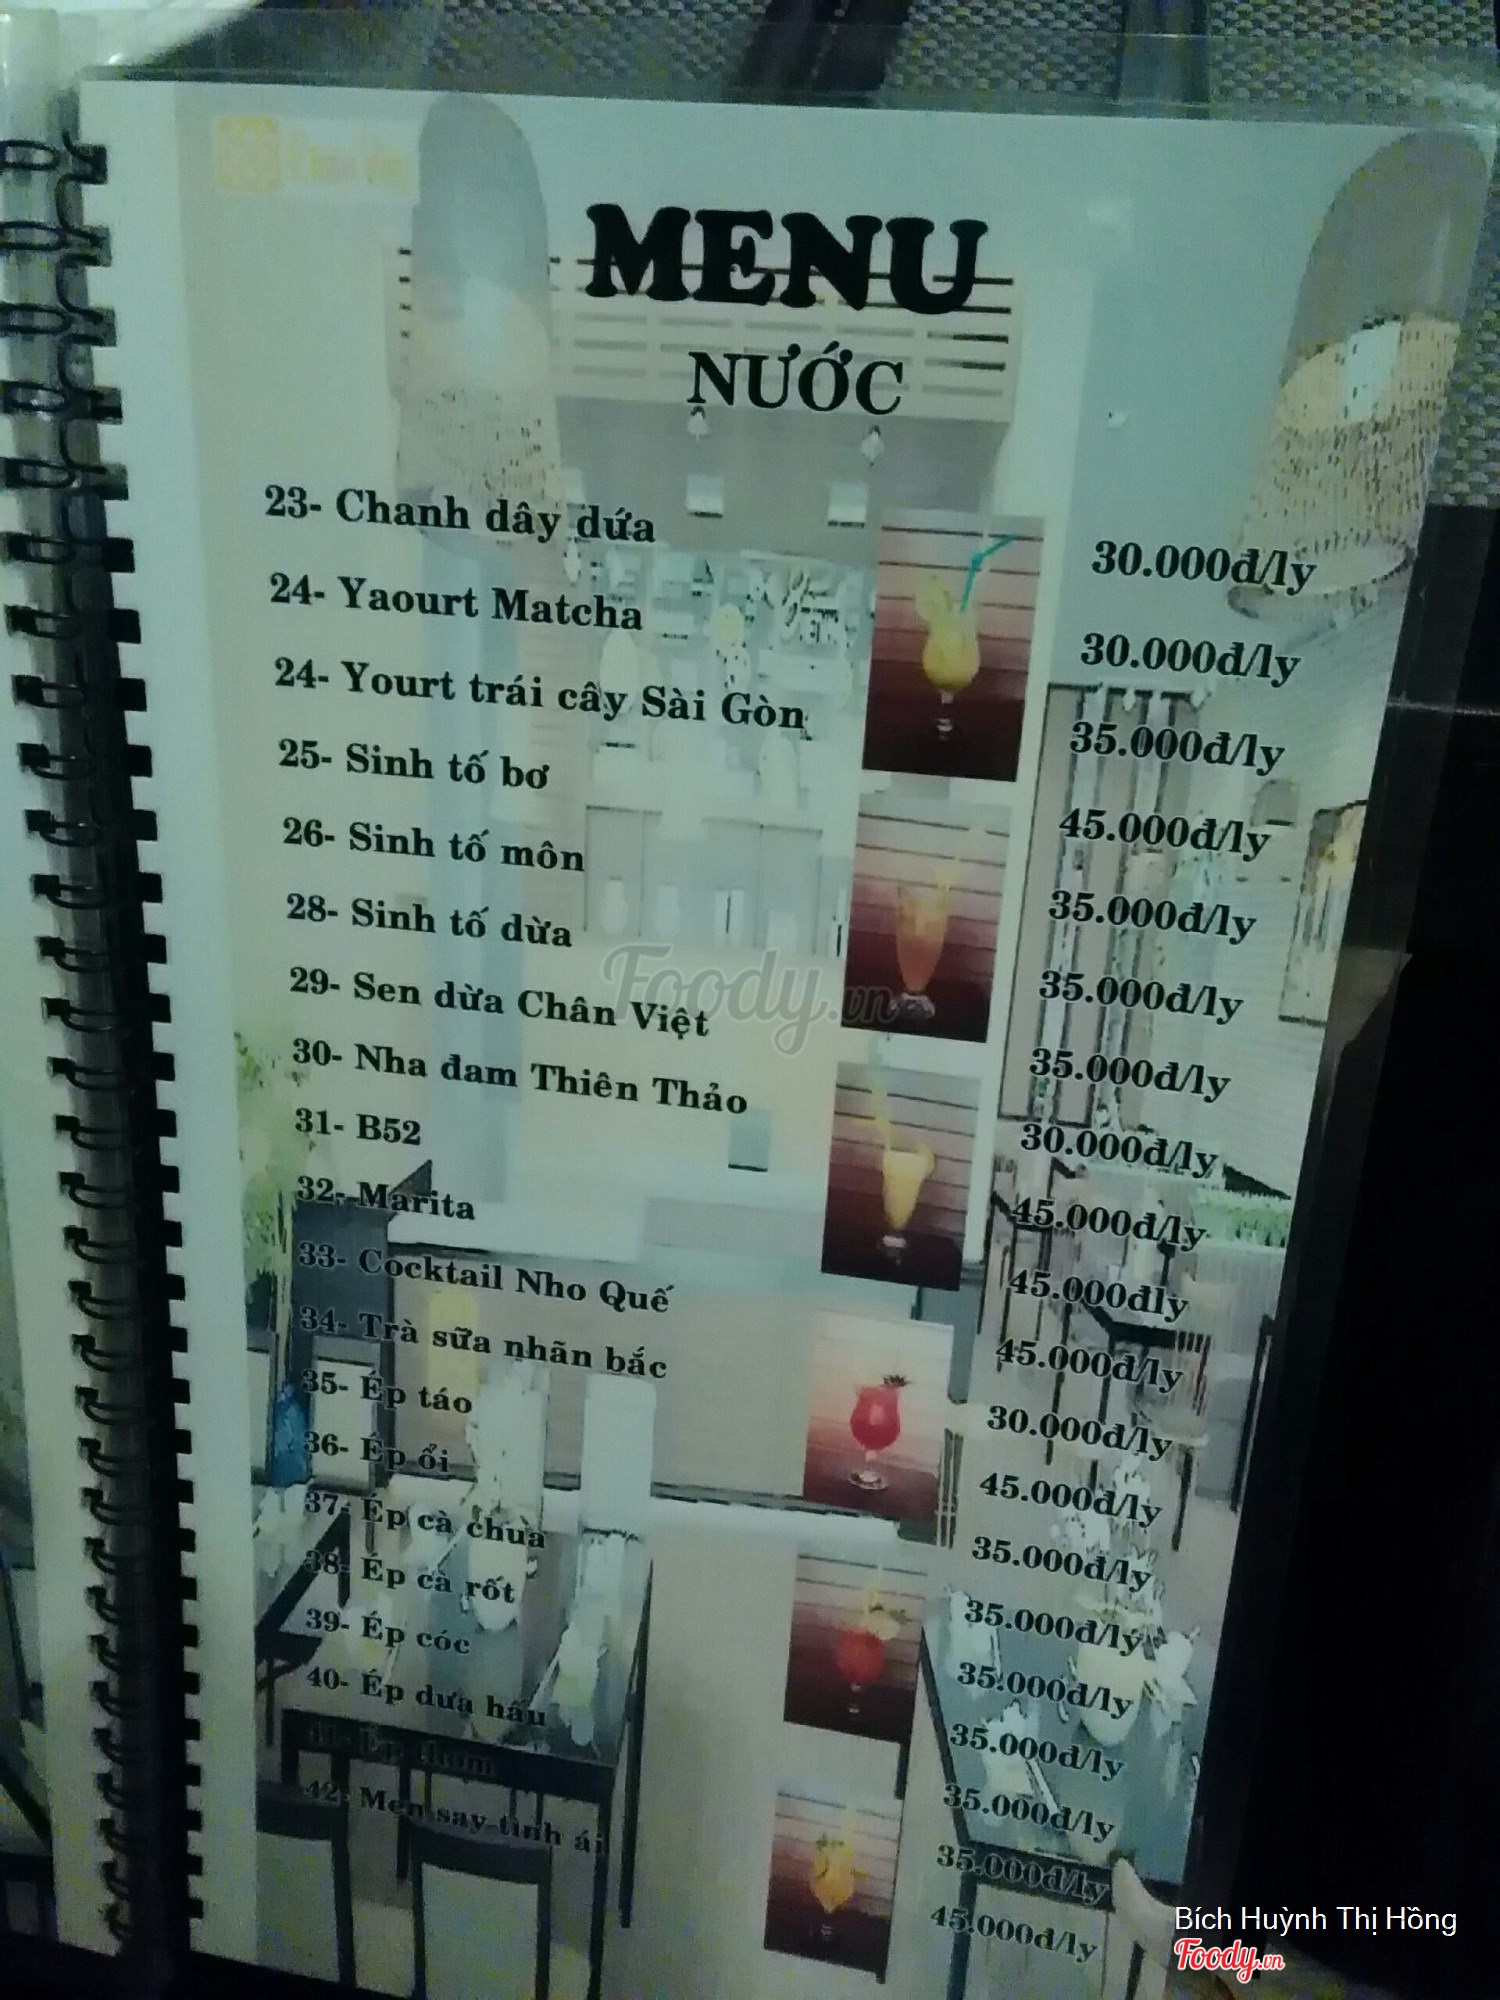 MENU
NƯỚC
23- Chanh dây dứa 30.000đ/ly
24- Yaourt Matcha 30.000đ/ly
24- Yourt trái cây Sài Gòn 35.000đ/ly
25- Sinh tố bơ 45.000đ/ly
26- Sinh tố môn 35.000đ/ly
28- Sinh tố dừa 35.000đ/ly
29- Sen dừa Chân Việt 35.000đ/ly
30- Nha đam Thiên Thảo 30.000đ/ly
31- B52 45.000đ/ly
32- Marita 45.000đly
33- Cocktail Nho Quế 45.000đ/ly
34- Trà sữa nhãn bắc 30.000đ/ly
35- Ép táo 45.000đ/ly
36- Ép ổi 35.000đ/ly
37- Ép cà chua 35.000đ/ly
38- Ép cà rốt 35.000đ/ly
39- Ép cóc 35.000đ/ly
40- Ép dưa hấu 35.000đ/ly
41- Ép thơm 35.000đ/ly
42- Men say tình ái 45.000đ/ly
Foody.vn
Bích Huỳnh Thị Hồng
Foody.vn